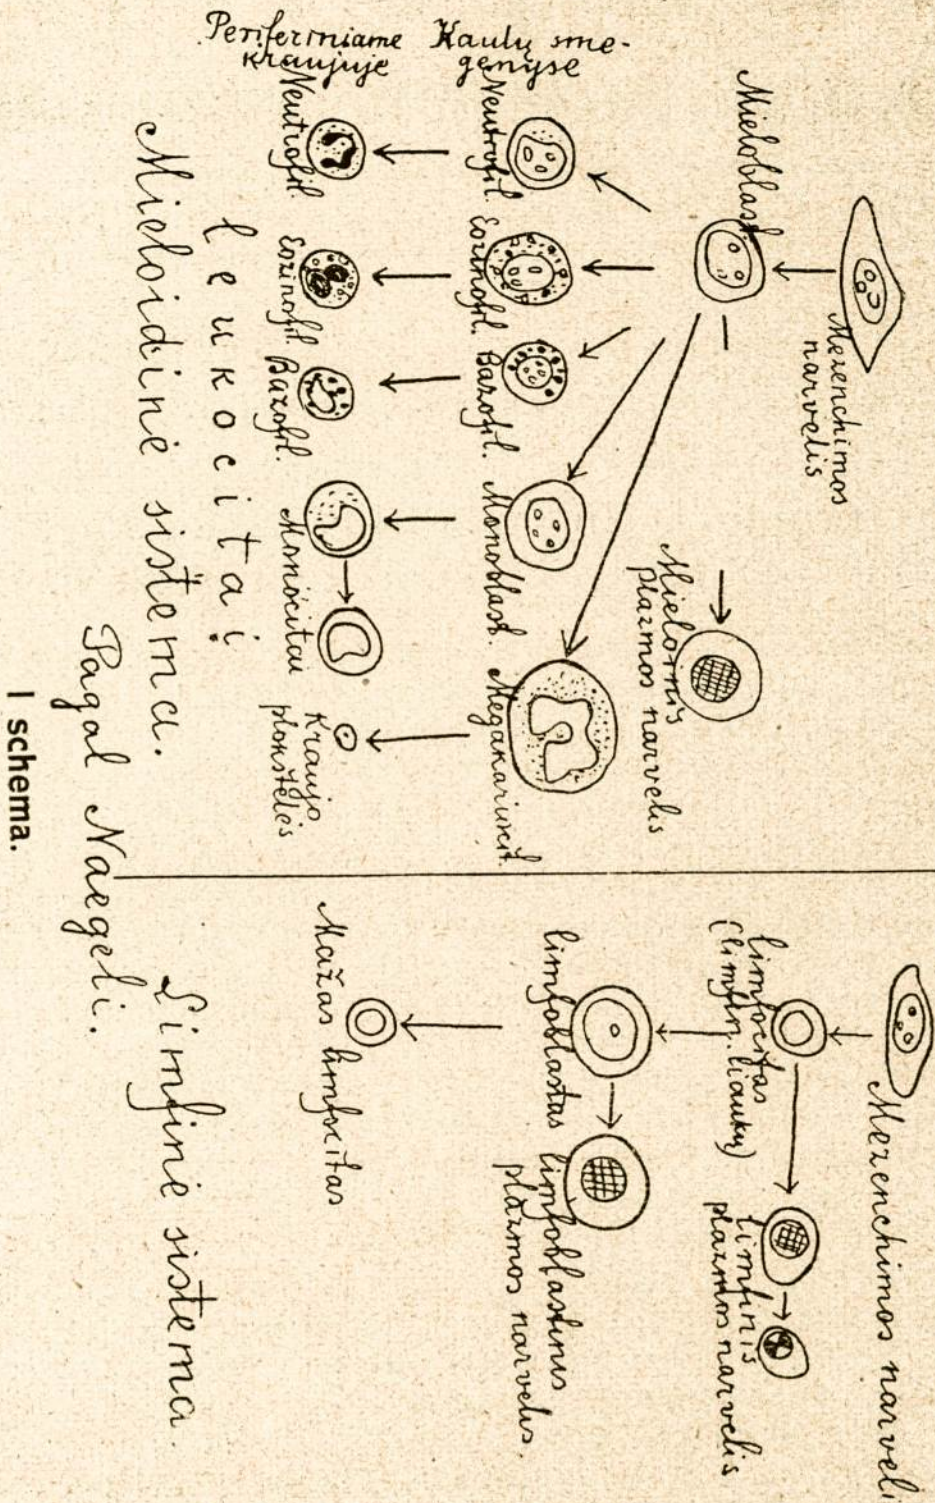 Mezenchimos
narvelis
Mieloblast.
Mielornis
plazmos narvelis
Kaulų sme-
genyse
Neutrofil.
Eozinofil.
Bazofil.
Monoblast.
Megakariocit.
Periferiniame
kraujuje
Neutrofil.
Eozinofil.
Bazofil.
Monocitai
Kraujo
plokštelės
leukocitai
Mieloidinė sistema.
Mezenchimos narveli
limfocitas
(limfin. liaukų)
limfinis
plazmos narvelis
limfoblastas
limfoblastinis
plazmos narvelis.
Mažas limfocitas
Limfinė sistema.
Pagal Naegeli.
I schema.